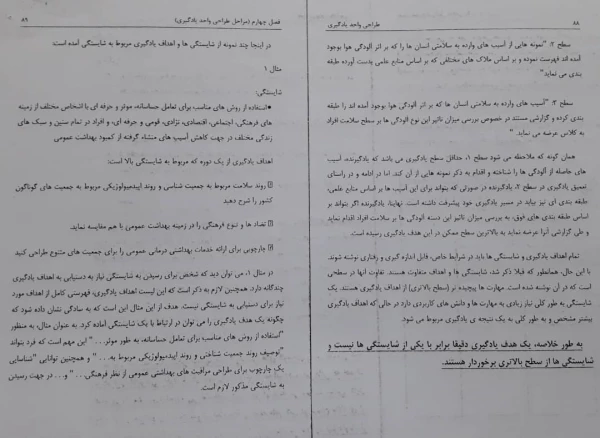 ۸۸
طراحی واحد یادگیری
سطح ۲: "نمونه هایی از آسیب های وارده به سلامتی انسان ها را که بر اثر آلودگی هوا بوجود
آمده اند فهرست نموده و بر اساس ملاک های مختلفی که بر اساس منابع علمی بدست آورده طبقه
بندی می نماید"
سطح ۳: "آسیب های وارده به سلامتی انسان ها که بر اثر آلودگی هوا بوجود آمده اند را طبقه
بندی کرده و گزارشی مستند در خصوص بررسی میزان تاثیر این نوع آلودگی ها بر سطح سلامت افراد
به کلاس عرضه می نماید. "
همان گونه که ملاحظه می شود سطح ۱، حداقل سطح یادگیری می باشد که یادگیرنده، آسیب
های حاصله از آلودگی ها را شناخته و اقدام به ذکر نمونه هایی از آن کند. اما در ادامه و در راستای
تعمیق یادگیری در سطح ۲، یادگیرنده در صورتی که بتواند برای این آسیب ها بر اساس منابع علمی،
طبقه بندی ای نیز بیابد در مسیر یادگیری خود پیشرفت داشته است. نهایتا، یادگیرنده اگر بتواند بر
اساس طبقه بندی های فوق، به بررسی میزان تاثیر این دسته آلودگی ها بر سلامت افراد اقدام نماید
و طی گزارشی آنرا عرضه نماید به بالاترین سطح ممکن در این هدف یادگیری رسیده است.
تمام اهداف یادگیری و شایستگی ها باید در شرایط خاص، قابل اندازه گیری و رفتاری نوشته شوند.
با این حال، همانطور که قبلا ذکر شد، شایستگی ها و اهداف متفاوت هستند. تفاوت آنها در سطحی
است که در آن نوشته شده است. مهارت ها پیچیده تر (سطح بالاتری) از اهداف یادگیری هستند. یک
شایستگی به طور کلی نیاز زیادی به مهارت ها و دانش های کاربردی دارد در حالی که اهداف یادگیری
بیشتر مشخص و به طور کلی به یک نتیجه ی یادگیری مربوط می شود.
به طور خلاصه، یک هدف یادگیری دقیقا برابر با یکی از شایستگی ها نیست و
شایستگی ها از سطح بالاتری برخوردار هستند.
فصل چهارم (مراحل طراحی واحد یادگیری)
۸۹
در اینجا چند نمونه از شایستگی ها و اهداف یادگیری مربوط به شایستگی آمده است:
مثال ۱
شایستگی:
●استفاده از روش های مناسب برای تعامل حساسانه، موثر و حرفه ای با اشخاص مختلف از زمینه
های فرهنگی، اجتماعی، اقتصادی، نژادی، قومی و حرفه ای، و افراد در تمام سنین و سبک های
زندگی مختلف در جهت کاهش آسیب های منتشاء گرفته از کمبود بهداشت عمومی
اهداف یادگیری از یک دوره که مربوط به شایستگی بالا است:
روند سلامت مربوط به جمعیت شناسی و روند اپیدمیولوژیکی مربوط به جمعیت های گوناگون
کشور را شرح دهید
تضاد ها و تنوع فرهنگی را در زمینه بهداشت عمومی با هم مقایسه نماید.
چارچوبی برای ارائه خدمات بهداشتی درمانی عمومی را برای جمعیت های متنوع طراحی کنید
در مثال ۱، می توان دید که شخص برای رسیدن به شایستگی نیاز به دستیابی به اهداف یادگیری
چندگانه دارد. همچنین لازم به ذکر است که این لیست اهداف یادگیری، فهرستی کامل از اهداف مورد
نیاز برای دستیابی به شایستگی نیست. هدف از این مثال این است که به سادگی نشان داده شود که
چگونه یک هدف یادگیری را می توان در ارتباط با یک شایستگی آماده کرد. به عنوان مثال، به منظور
"استفاده از روش های مناسب برای تعامل حساسانه، به طور موثر... " این مهم است که فرد بتواند
"توصیف روند جمعیت شناختی و روند اپیدمیولوژیکی مربوط به... " و همچنین توانایی "شناسایی
یک چارچوب برای طراحی مراقبت های بهداشتی عمومی از نظر فرهنگی . . " و... در جهت رسیدن
به شایستگی مذکور لازم است.